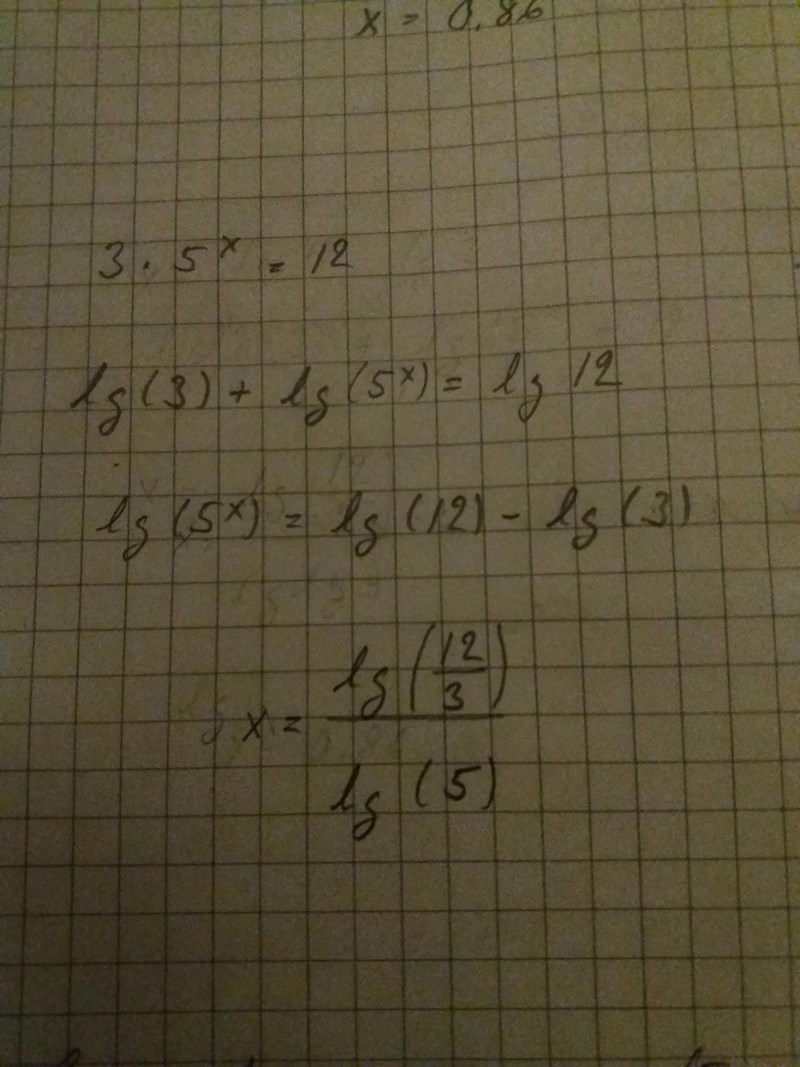 x = 0.86
3 · 5^x = 12
lg(3) + lg(5^x) = lg 12
lg(5^x) = lg(12) - lg(3)
x = lg(12/3) / lg(5)